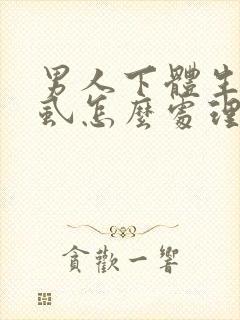 男人下體生
虱怎麼處理
貪歡一響